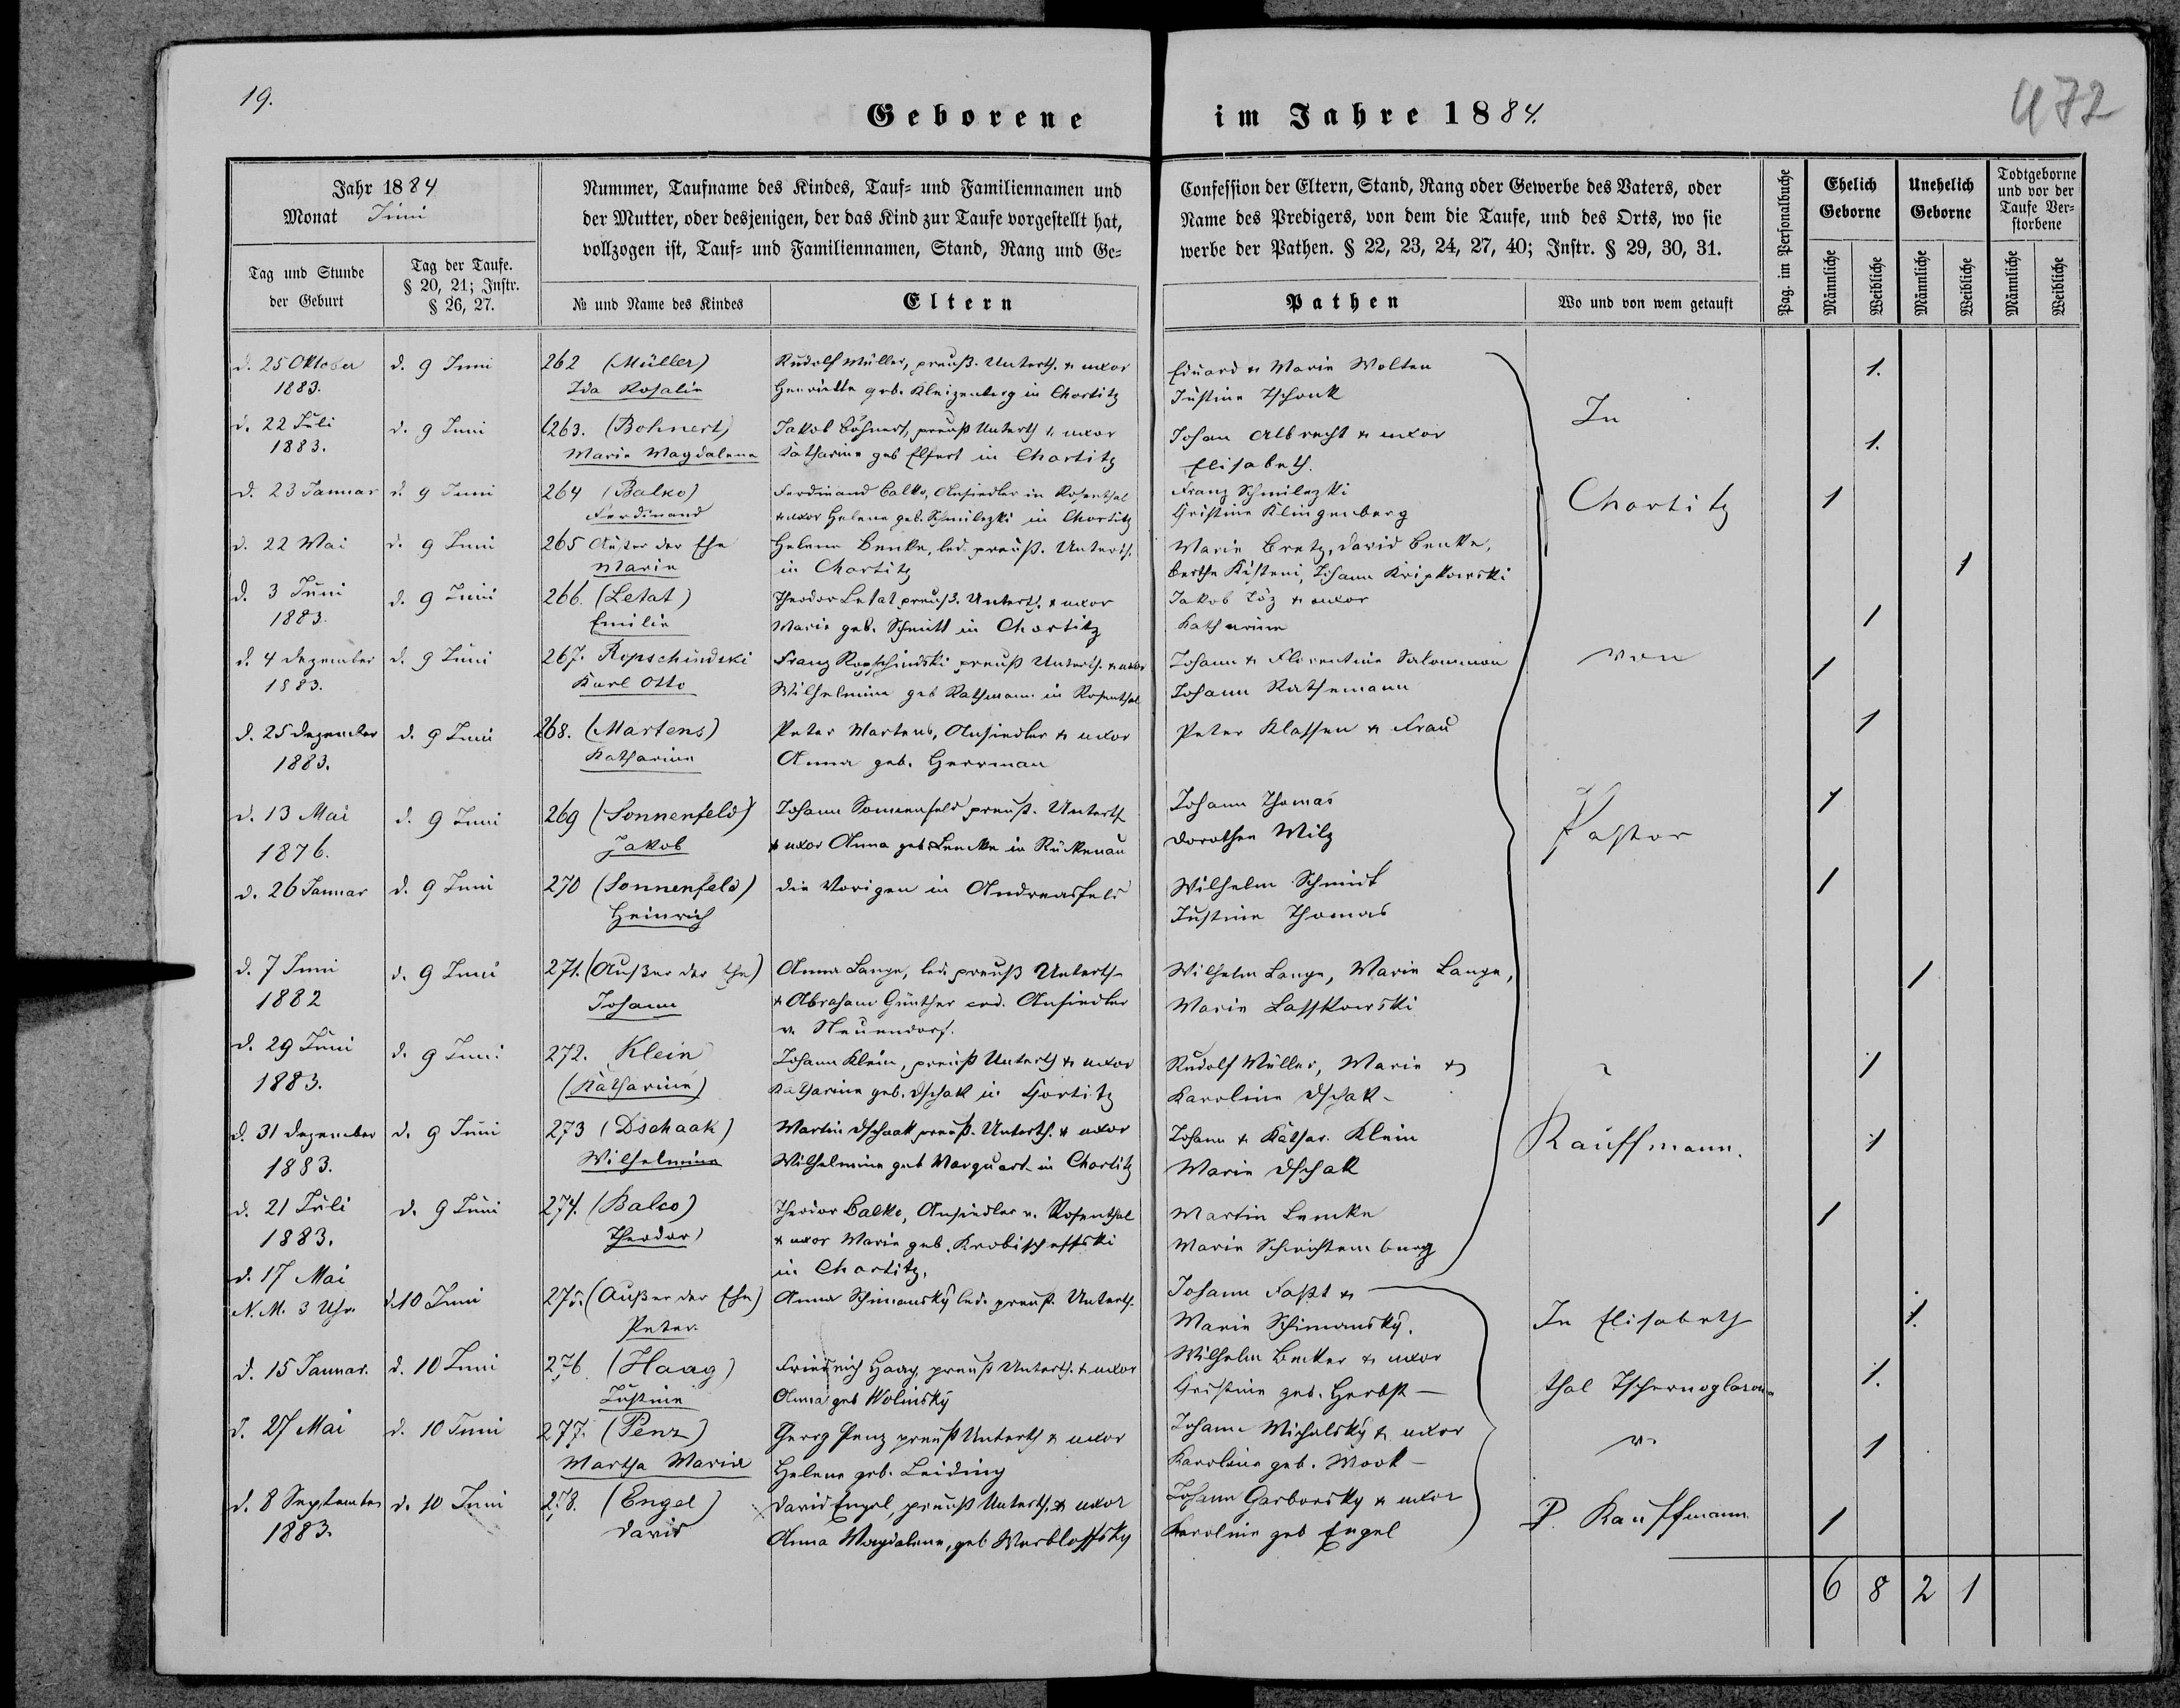 19.
472
Geborene im Jahre 1884.
Jahr 1884
Monat Juni
Nummer, Taufname des Kindes, Tauf= und Familiennamen und
der Mutter, oder desjenigen, der das Kind zur Taufe vorgestellt hat,
vollzogen ist, Tauf= und Familiennamen, Stand, Rang und Ge=
Confession der Eltern, Stand, Rang oder Gewerbe des Vaters, oder
Name des Predigers, von dem die Taufe, und des Orts, wo sie
werbe der Pathen. § 22, 23, 24, 27, 40; Instr. § 29, 30, 31.
Pag. im Personalbuche
Ehelich
Geborne
Unehelich
Geborne
Todtgeborne
und vor der
Taufe Ver=
storbene
Tag und Stunde
der Geburt
Tag der Taufe.
§ 20, 21; Instr.
§ 26, 27.
№ und Name des Kindes
Eltern
Pathen
Wo und von wem getauft
Männliche
Weibliche
Männliche
Weibliche
Männliche
Weibliche
d. 25 Oktober d. 9 Juni 262 (Müller) Rudolf Müller, preuß. Unterth. & uxor Eduard & Marie Wolten 1.
1883. Ida Rosalie Henriette geb. Kleizenberg in Chortitz Justine Tschonk
In
d. 22 Juli d. 9 Juni 263. (Bohnert) Jakob Bohnert, preuß Unterth & uxor Johan Albrecht & uxor 1.
1883. Marie Magdalena Katharine geb Elfert in Chortitz Elisabeth.
d. 23 Januar d. 9 Juni 264 (Balko) Ferdinand Balko, Ansiedler in Rosenthal Franz Schmilezki Chortitz 1
Ferdinand & uxor Helene geb. Schmilezki in Chortitz Christine Klingenberg
d. 22 Mai d. 9 Juni 265 Außer der Ehe Helene Benke, led. preuß. Unterth. Marie Bretz, David Benke, 1
Marie in Chortitz Berthe Kisteni, Johann Kripkowski
d. 3 Juni d. 9 Juni 266. (Letat) Theodor Letat preuß. Unterth. & uxor Jakob Töz & uxor 1
1883. Emilie Marie geb. Schmitt in Chortitz Katharine
d. 4 Dezember d. 9 Juni 267. Ropschindski Franz Ropschindski preuß Unterth. & uxor Johann & Florentine Salomon von 1
1883. Karl Otto Wilhelmine geb Rathmann in Rosenthal Johann Rathemann
d. 25 Dezember d. 9 Juni 268. (Martens) Peter Martens, Ansiedler & uxor Peter Klassen & Frau 1
1883. Katharine Anna geb. Herrman
d. 13 Mai d. 9 Juni 269 (Sonnenfeld) Johann Sonnenfeld preuß. Unterth Johann Thomas 1
1876. Jakob & uxor Anna geb. Lemke in Rückenau Dorothea Milz Pastor
d. 26 Januar d. 9 Juni 270 (Sonnenfeld) die Vorigen in Andreasfeld Wilhelm Schmidt 1
Heinrich Justine Thomas
d. 7 Juni d. 9 Juni 271. (Außer der Ehe) Anna Lange, led. preuß Unterth Wilhelm Lange, Marie Lange, 1
1882 Johann & Abraham Günther Ansiedler Marie Lasskowski
v. Neuendorf.
d. 29 Juni d. 9 Juni 272. Klein Johann Klein, preuß Unterth & uxor Rudolf Müller, Marie & 1
1883. (Katharine) Katharine geb. Dschak in Chortitz Karoline Dschak
d. 31 Dezember d. 9 Juni 273 (Dschaak) Martin Dschaak preuß. Unterth. & uxor Johann & Kathar. Klein Kauffmann. 1
1883. Wilhelmine Wilhelmine geb Marquart in Chortitz Marie Dschak
d. 21 Juli d. 9 Juni 274. (Balco) Theodor Balko, Ansiedler v. Rosenthal Martin Lemke 1
1883. Theodor & uxor Marie geb. Krobischeffski Marie Schichtemburg
in Chortitz.
d. 17 Mai d. 10 Juni 275. (Außer der Ehe) Anna Schimansky led. preuß. Unterth. Johann Fast &
N.M. 3 Uhr. Peter. Marie Schimansky. In Elisabeth 1.
d. 15 Januar. d. 10 Juni 276. (Haag) Friedrich Haag, preuß Unterth. & uxor Wilhelm Becker & uxor
Justine Anna geb Wolinsky Christine geb. Herbst thal Tschernoglasow 1.
d. 27 Mai d. 10 Juni 277. (Penz) Georg Penz preuß Unterth & uxor Johann Michalsky & uxor v. 1
Martha Marie Helene geb. Leiding Karoline geb. Mook
d. 8 September d. 10 Juni 278. (Engel) David Engel, preuß Unterth. & uxor Johann Garborsky & uxor P. Kauffmann 1
1883. David Anna Magdalena, geb Werbloffsky Karoline geb Engel
6 8 2 1